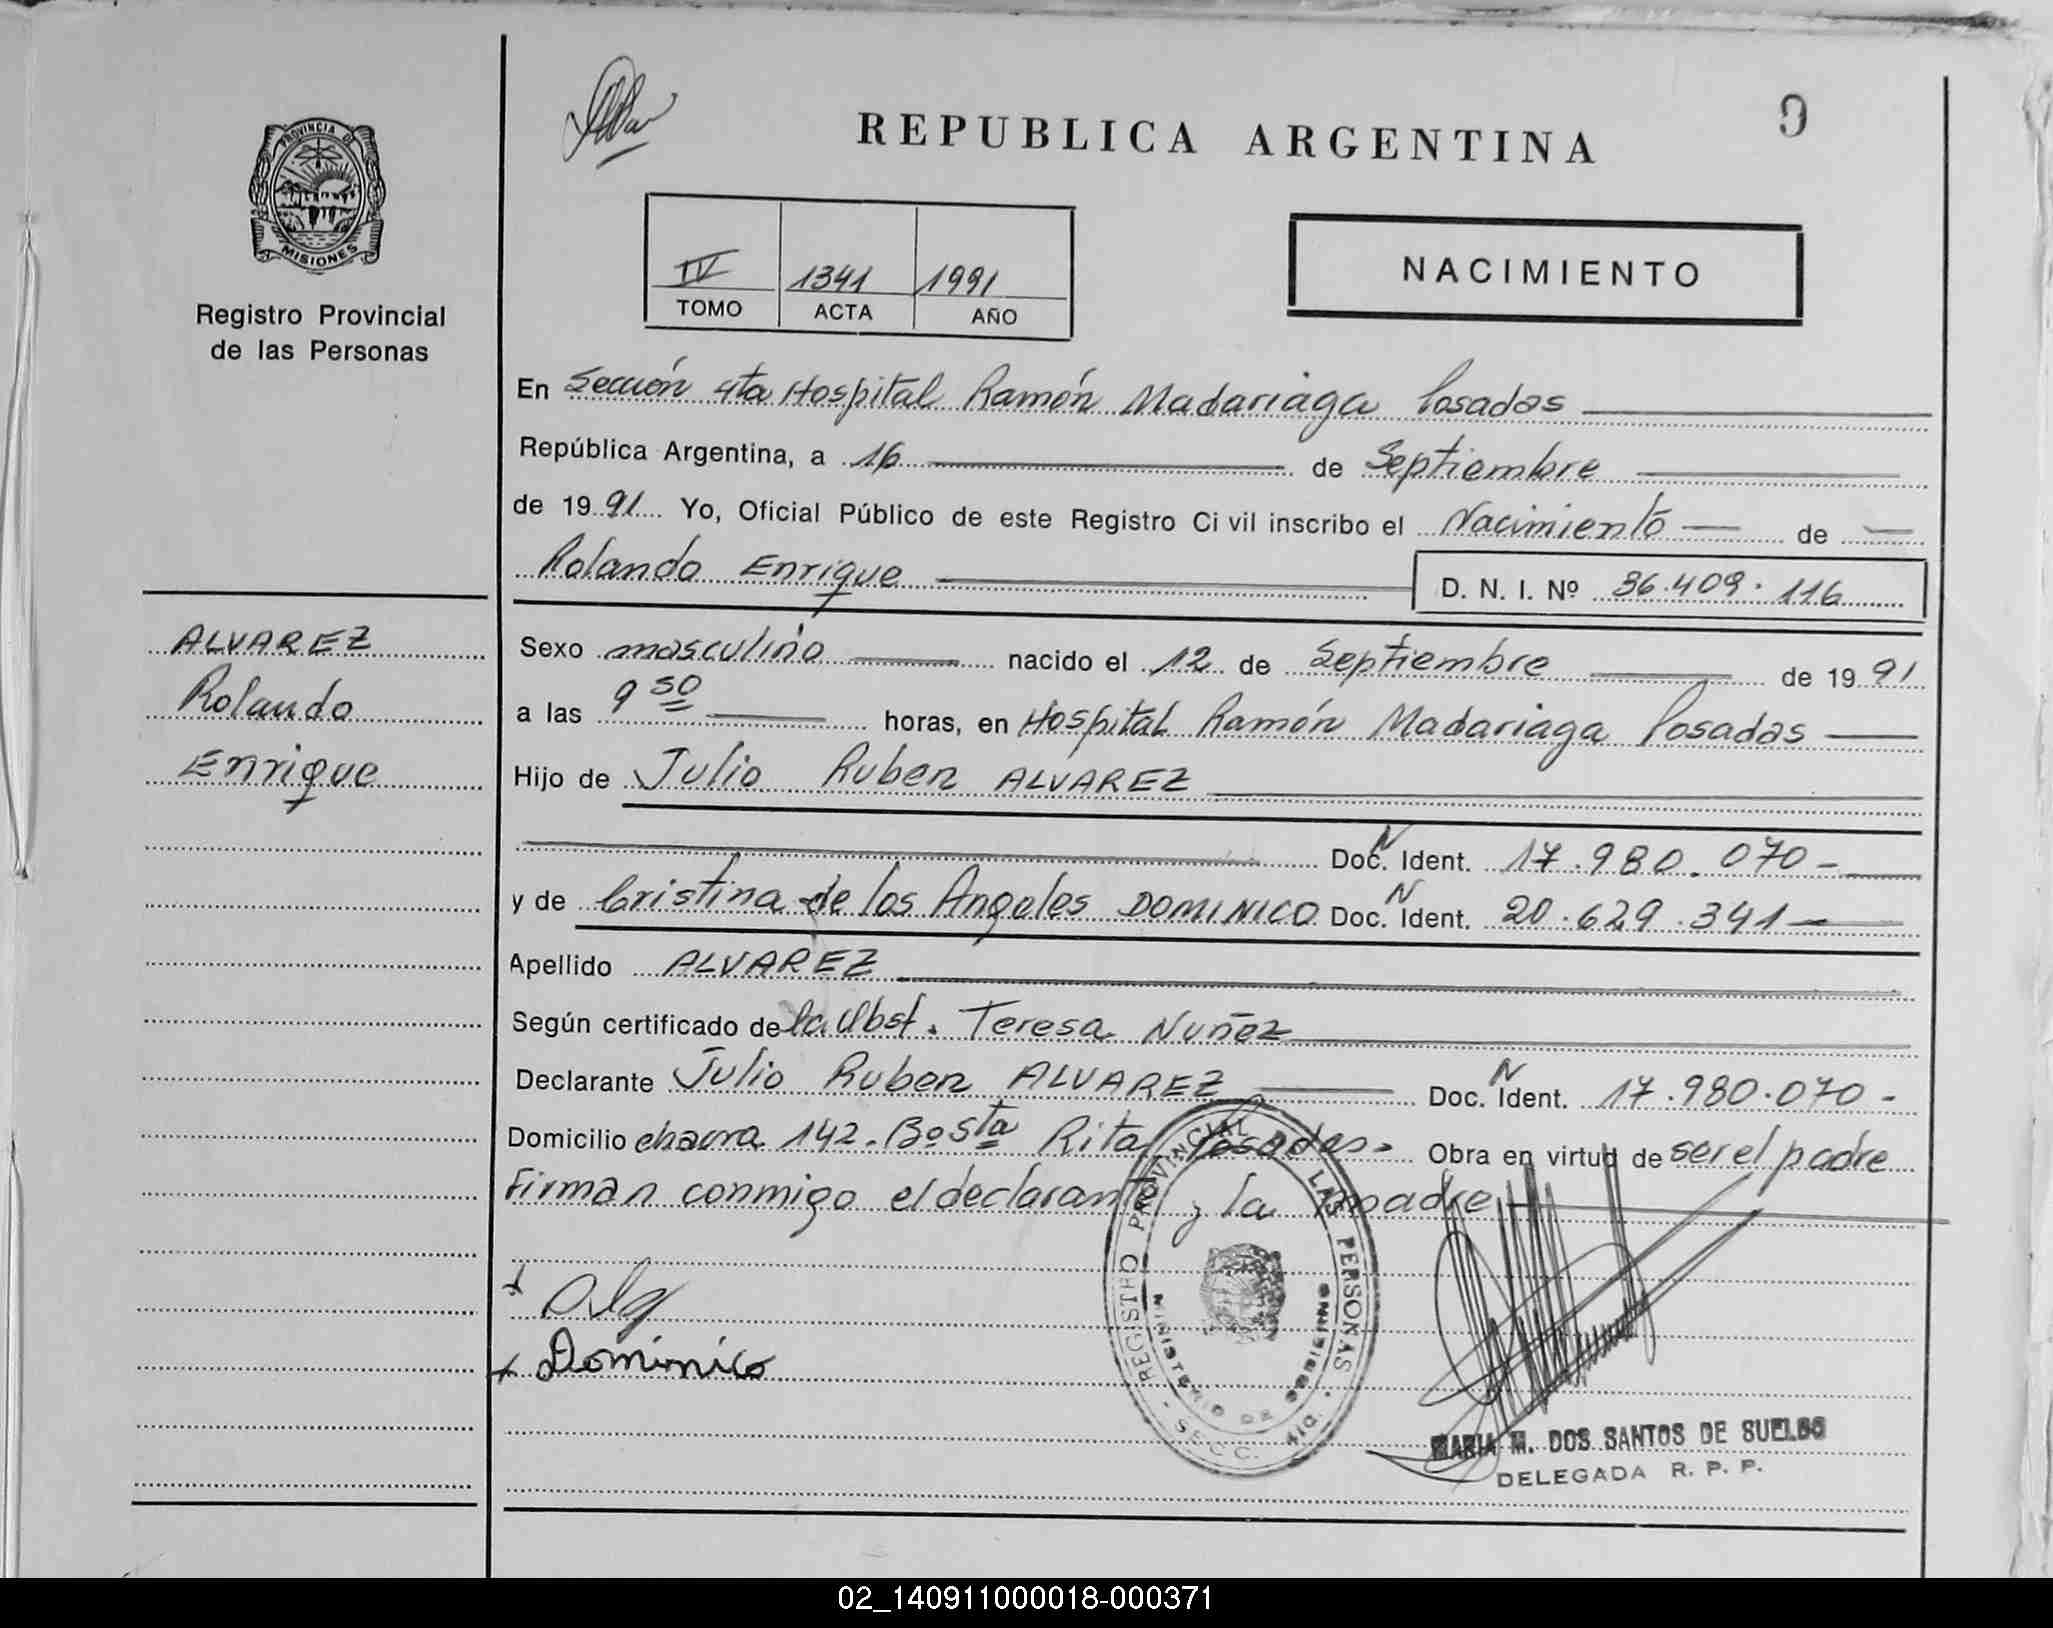 REPUBLICA ARGENTINA
9
PROVINCIA DE MISIONES
Registro Provincial
de las Personas
IV 1341 1991
TOMO ACTA AÑO
NACIMIENTO
En Sección 4ta Hospital Ramón Madariaga Posadas
República Argentina, a 16 de Septiembre
de 1991 Yo, Oficial Público de este Registro Civil inscribo el Nacimiento de
Rolando Enrique D. N. I. Nº 36.409.116
ALVAREZ
Rolando
Enrique
Sexo masculino nacido el 12 de Septiembre de 1991
a las 9 50 horas, en Hospital Ramón Madariaga Posadas
Hijo de Julio Ruben ALVAREZ
Doc. N Ident. 17.980.070-
y de Cristina de los Angeles DOMINICO Doc. N Ident. 20.629.341-
Apellido ALVAREZ
Según certificado de la Obst. Teresa Nuñez
Declarante Julio Ruben ALVAREZ Doc. N Ident. 17.980.070-
Domicilio chacra 142. Bº Sta Rita Posadas. Obra en virtud de ser el padre
Firman conmigo el declarante y la madre
Dominico
REGISTRO PROVINCIAL DE LAS PERSONAS
MINISTERIO DE GOBIERNO
SECC. 4ta.
MARIA M. DOS SANTOS DE SUELDO
DELEGADA R. P. P.
02_140911000018-000371